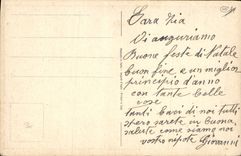 Cara Zia
Vi auguriamo
Buone feste di Natale
buon fine e un miglior
principio d'anno
con tante belle
cose
tanti baci di noi tutti
spero sarete in buona
salute come siamo noi
vostro nipote Giovanni